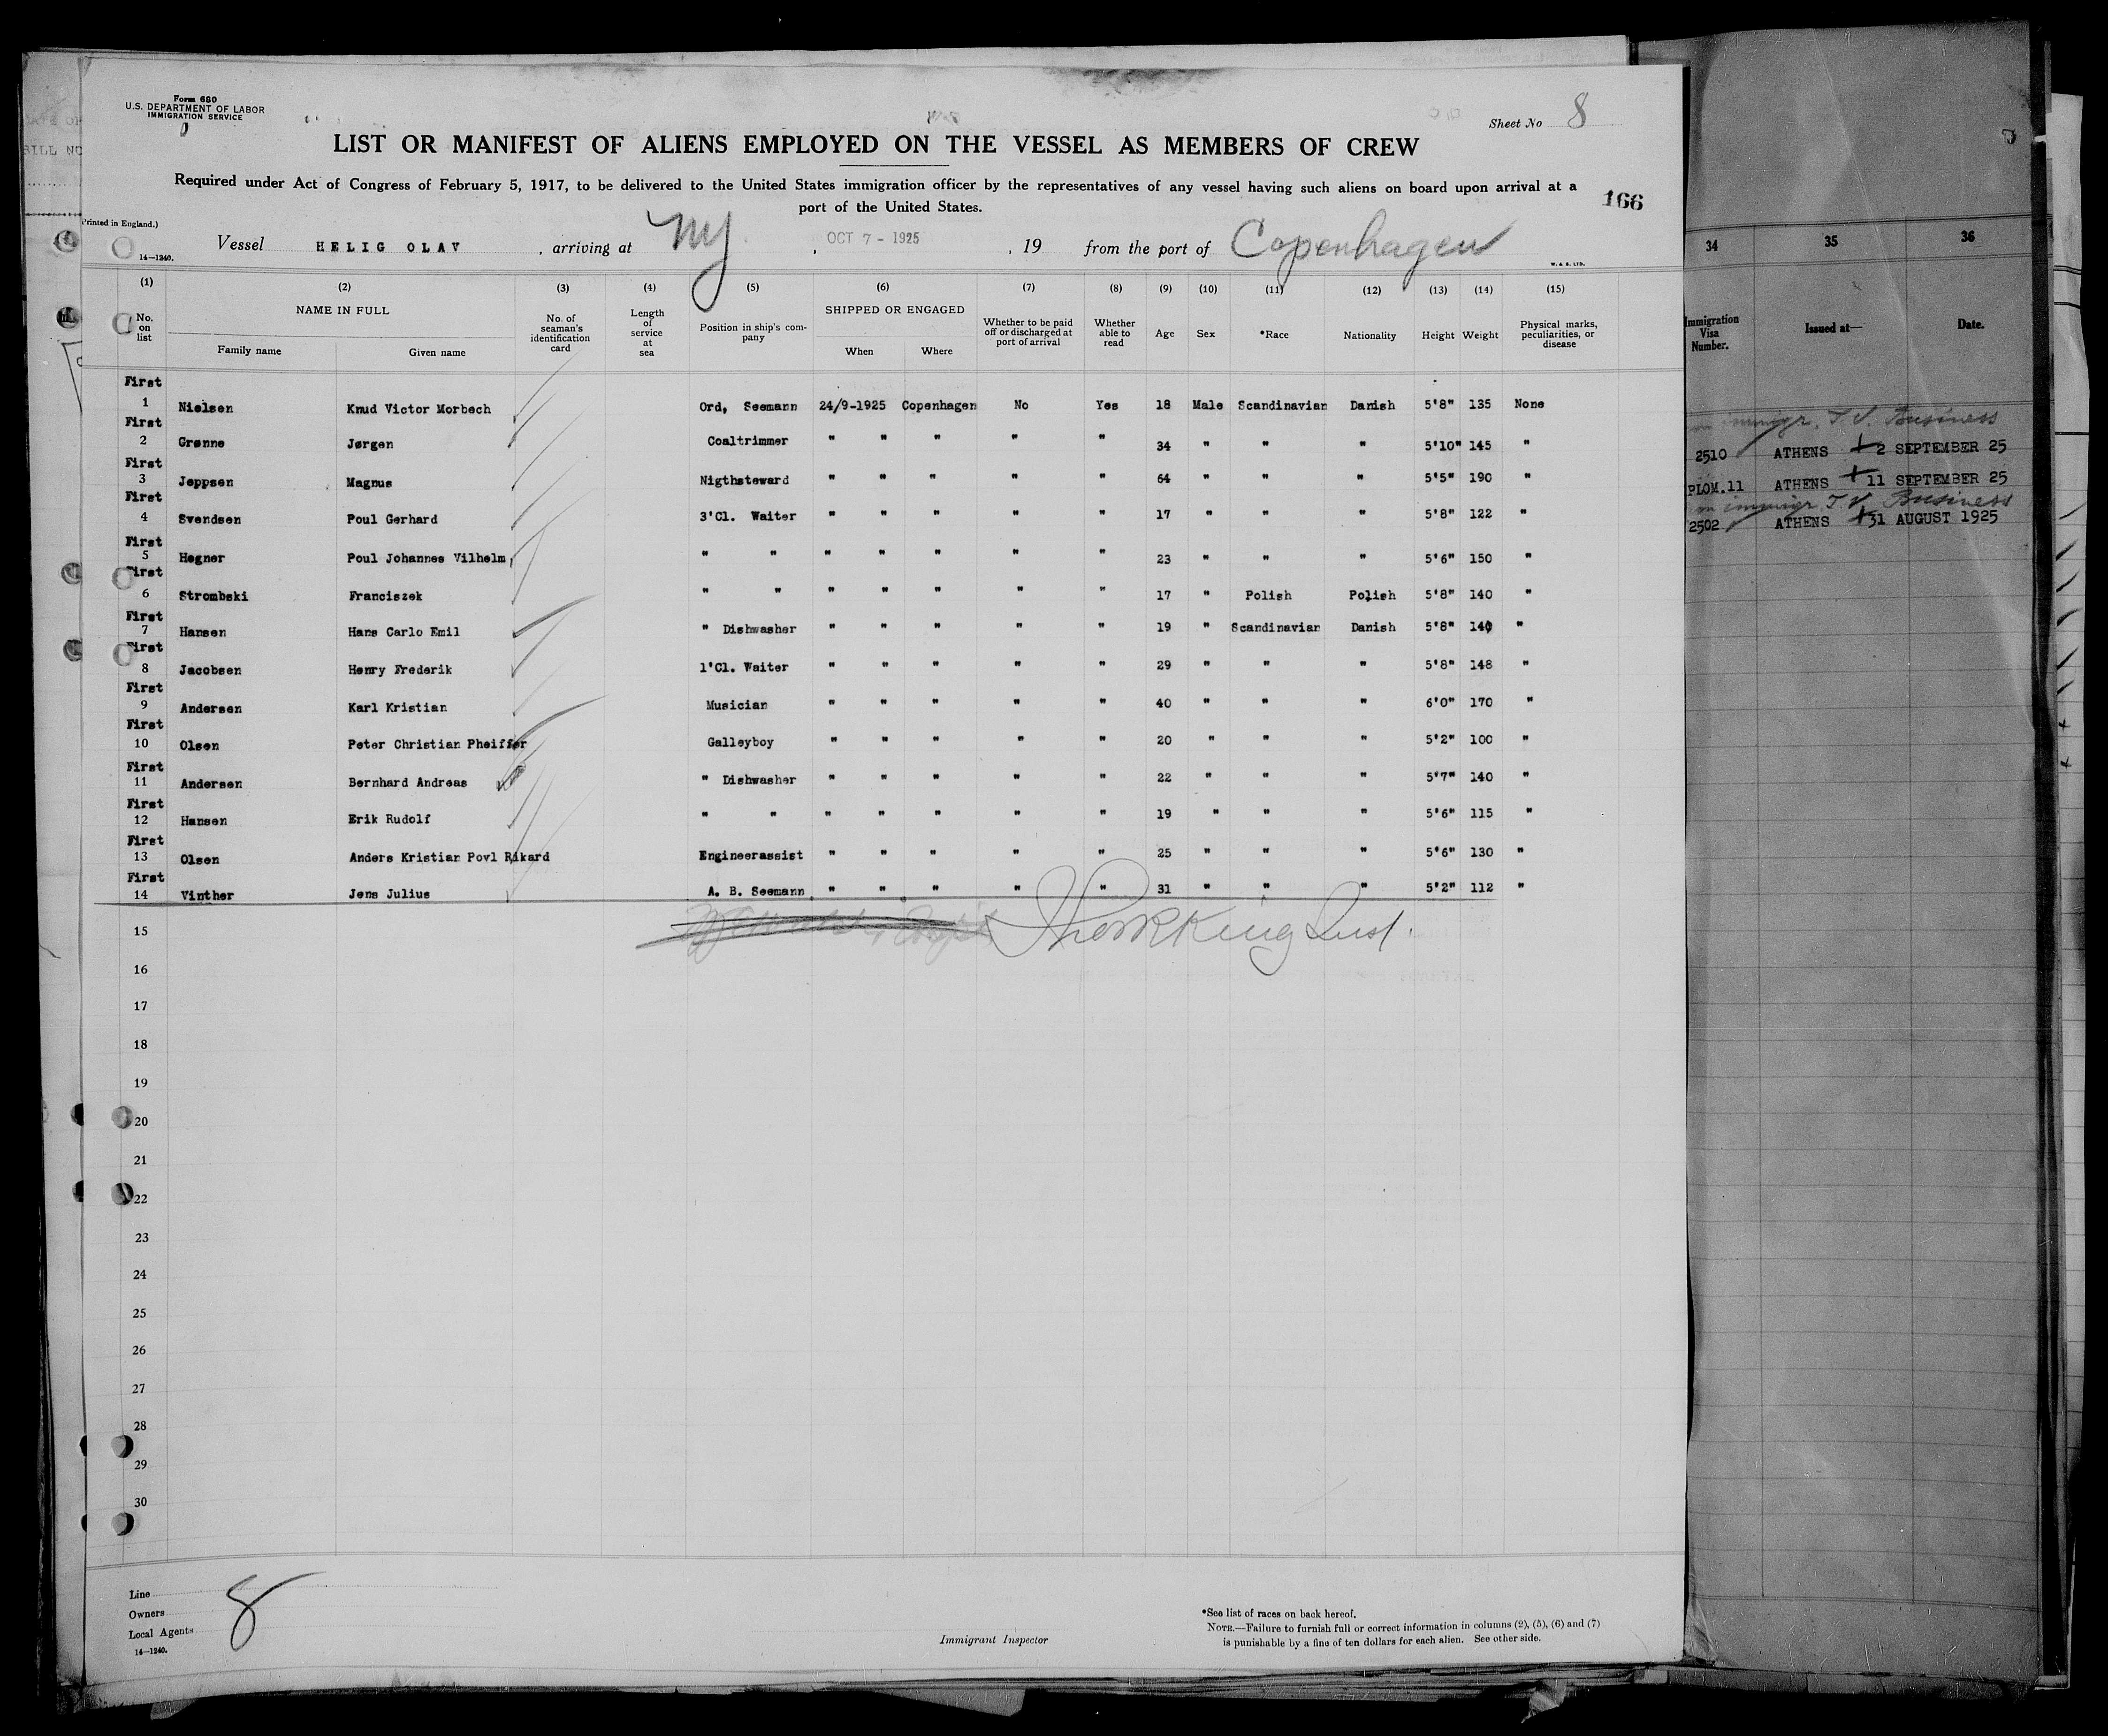 Form 680
U.S. DEPARTMENT OF LABOR
IMMIGRATION SERVICE
Sheet No 8
LIST OR MANIFEST OF ALIENS EMPLOYED ON THE VESSEL AS MEMBERS OF CREW
Required under Act of Congress of February 5, 1917, to be delivered to the United States immigration officer by the representatives of any vessel having such aliens on board upon arrival at a
port of the United States.
166
Printed in England.)
Vessel HELIG OLAV, arriving at NY, OCT 7 - 1925, 19 from the port of Copenhagen
14—1240.
W. & S. LTD.
(1) (2) (3) (4) (5) (6) (7) (8) (9) (10) (11) (12) (13) (14) (15)
No. on list NAME IN FULL Family name Given name No. of seaman's identification card Length of service at sea Position in ship's company SHIPPED OR ENGAGED When Where Whether to be paid off or discharged at port of arrival Whether able to read Age Sex *Race Nationality Height Weight Physical marks, peculiarities, or disease
First
1 Nielsen Knud Victor Morbech Ord, Seemann 24/9-1925 Copenhagen No Yes 18 Male Scandinavian Danish 5'8" 135 None
First
2 Grønne Jørgen Coaltrimmer " " " " " 34 " " " 5'10" 145 "
First
3 Jeppsen Magnus Nigthsteward " " " " " 64 " " " 5'5" 190 "
First
4 Svendsen Poul Gerhard 3'Cl. Waiter " " " " " 17 " " " 5'8" 122 "
First
5 Hegner Poul Johannes Vilhelm, " " " " " " " 23 " " " 5'6" 150 "
First
6 Strombski Franciszek " " " " " " " 17 " Polish Polish 5'8" 140 "
First
7 Hansen Hans Carlo Emil " Dishwasher " " " " " 19 " Scandinavian Danish 5'8" 140 "
First
8 Jacobsen Henry Frederik 1'Cl. Waiter " " " " " 29 " " " 5'8" 148 "
First
9 Andersen Karl Kristian Musician " " " " " 40 " " " 6'0" 170 "
First
10 Olsen Peter Christian Pheiffer Galleyboy " " " " " 20 " " " 5'2" 100 "
First
11 Andersen Bernhard Andreas " Dishwasher " " " " " 22 " " " 5'7" 140 "
First
12 Hansen Erik Rudolf " " " " " " " 19 " " " 5'6" 115 "
First
13 Olsen Anders Kristian Povl Rikard Engineerassist " " " " " 25 " " " 5'6" 130 "
First
14 Vinther Jens Julius A. B. Seemann " " " " " 31 " " " 5'2" 112 "
15
16
17
18
19
20
21
22
23
24
25
26
27
28
29
30
Line
Owners
Local Agents
14—1240.
8
Immigrant Inspector
*See list of races on back hereof.
NOTE.—Failure to furnish full or correct information in columns (2), (5), (6) and (7)
is punishable by a fine of ten dollars for each alien. See other side.
34 35 36
Immigration Visa Number. Issued at— Date.
immigr. T.V. Business
2510 ATHENS 2 SEPTEMBER 25
PLOM.11 ATHENS 11 SEPTEMBER 25
immigr T.V. Business
2502 ATHENS 31 AUGUST 1925
BILL NO